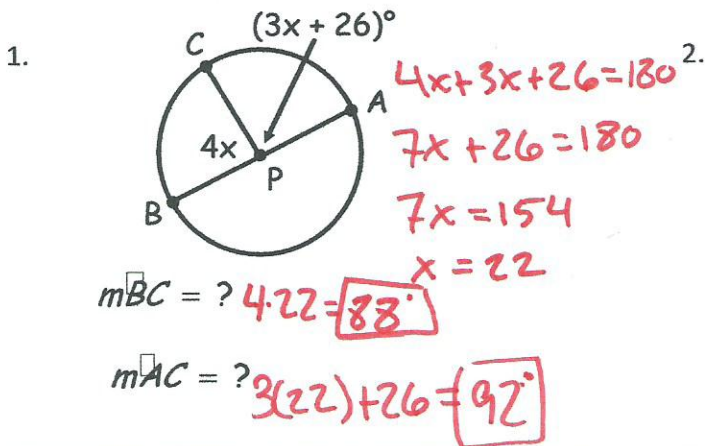 1.
(3x + 26)°
C
A
4x
P
B
4x+3x+26=180
7x+26=180
7x=154
x=22
m▯BC = ? 4·22=88°
m▯AC = ? 3(22)+26=92°
2.